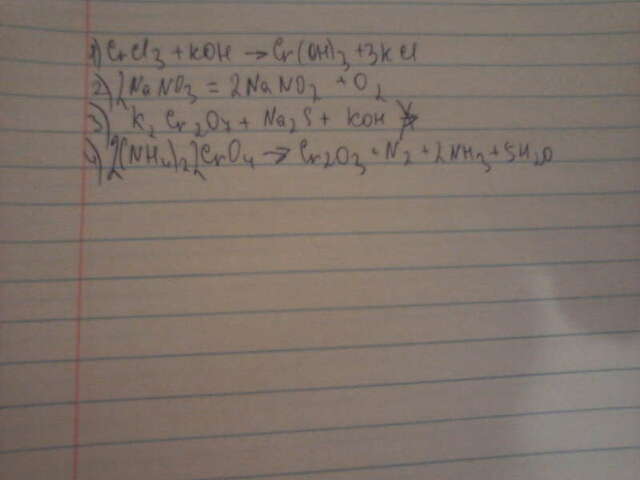 1) CrCl3 + KOH → Cr(OH)3 + 3KCl
2) 2NaNO3 = 2NaNO2 + O2
3) K2Cr2O7 + Na2S + KOH →
4) 2[(NH4)2]CrO4 → Cr2O3 + N2 + 2NH3 + 5H2O